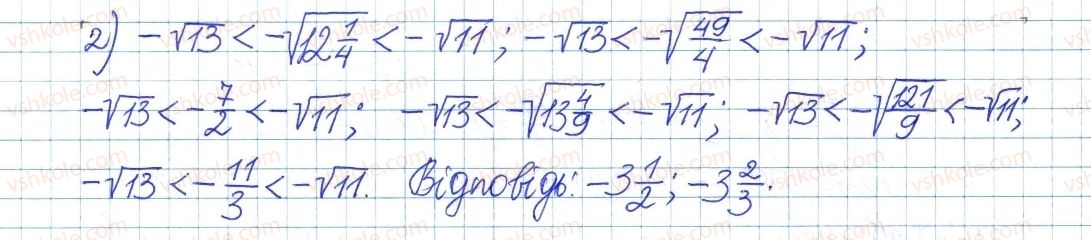 2) -√13 < -√(12 1/4) < -√11; -√13 < -√(49/4) < -√11;
-√13 < -7/2 < -√11; -√13 < -√(13 4/9) < -√11; -√13 < -√(121/9) < -√11;
-√13 < -11/3 < -√11. Відповідь: -3 1/2; -3 2/3.